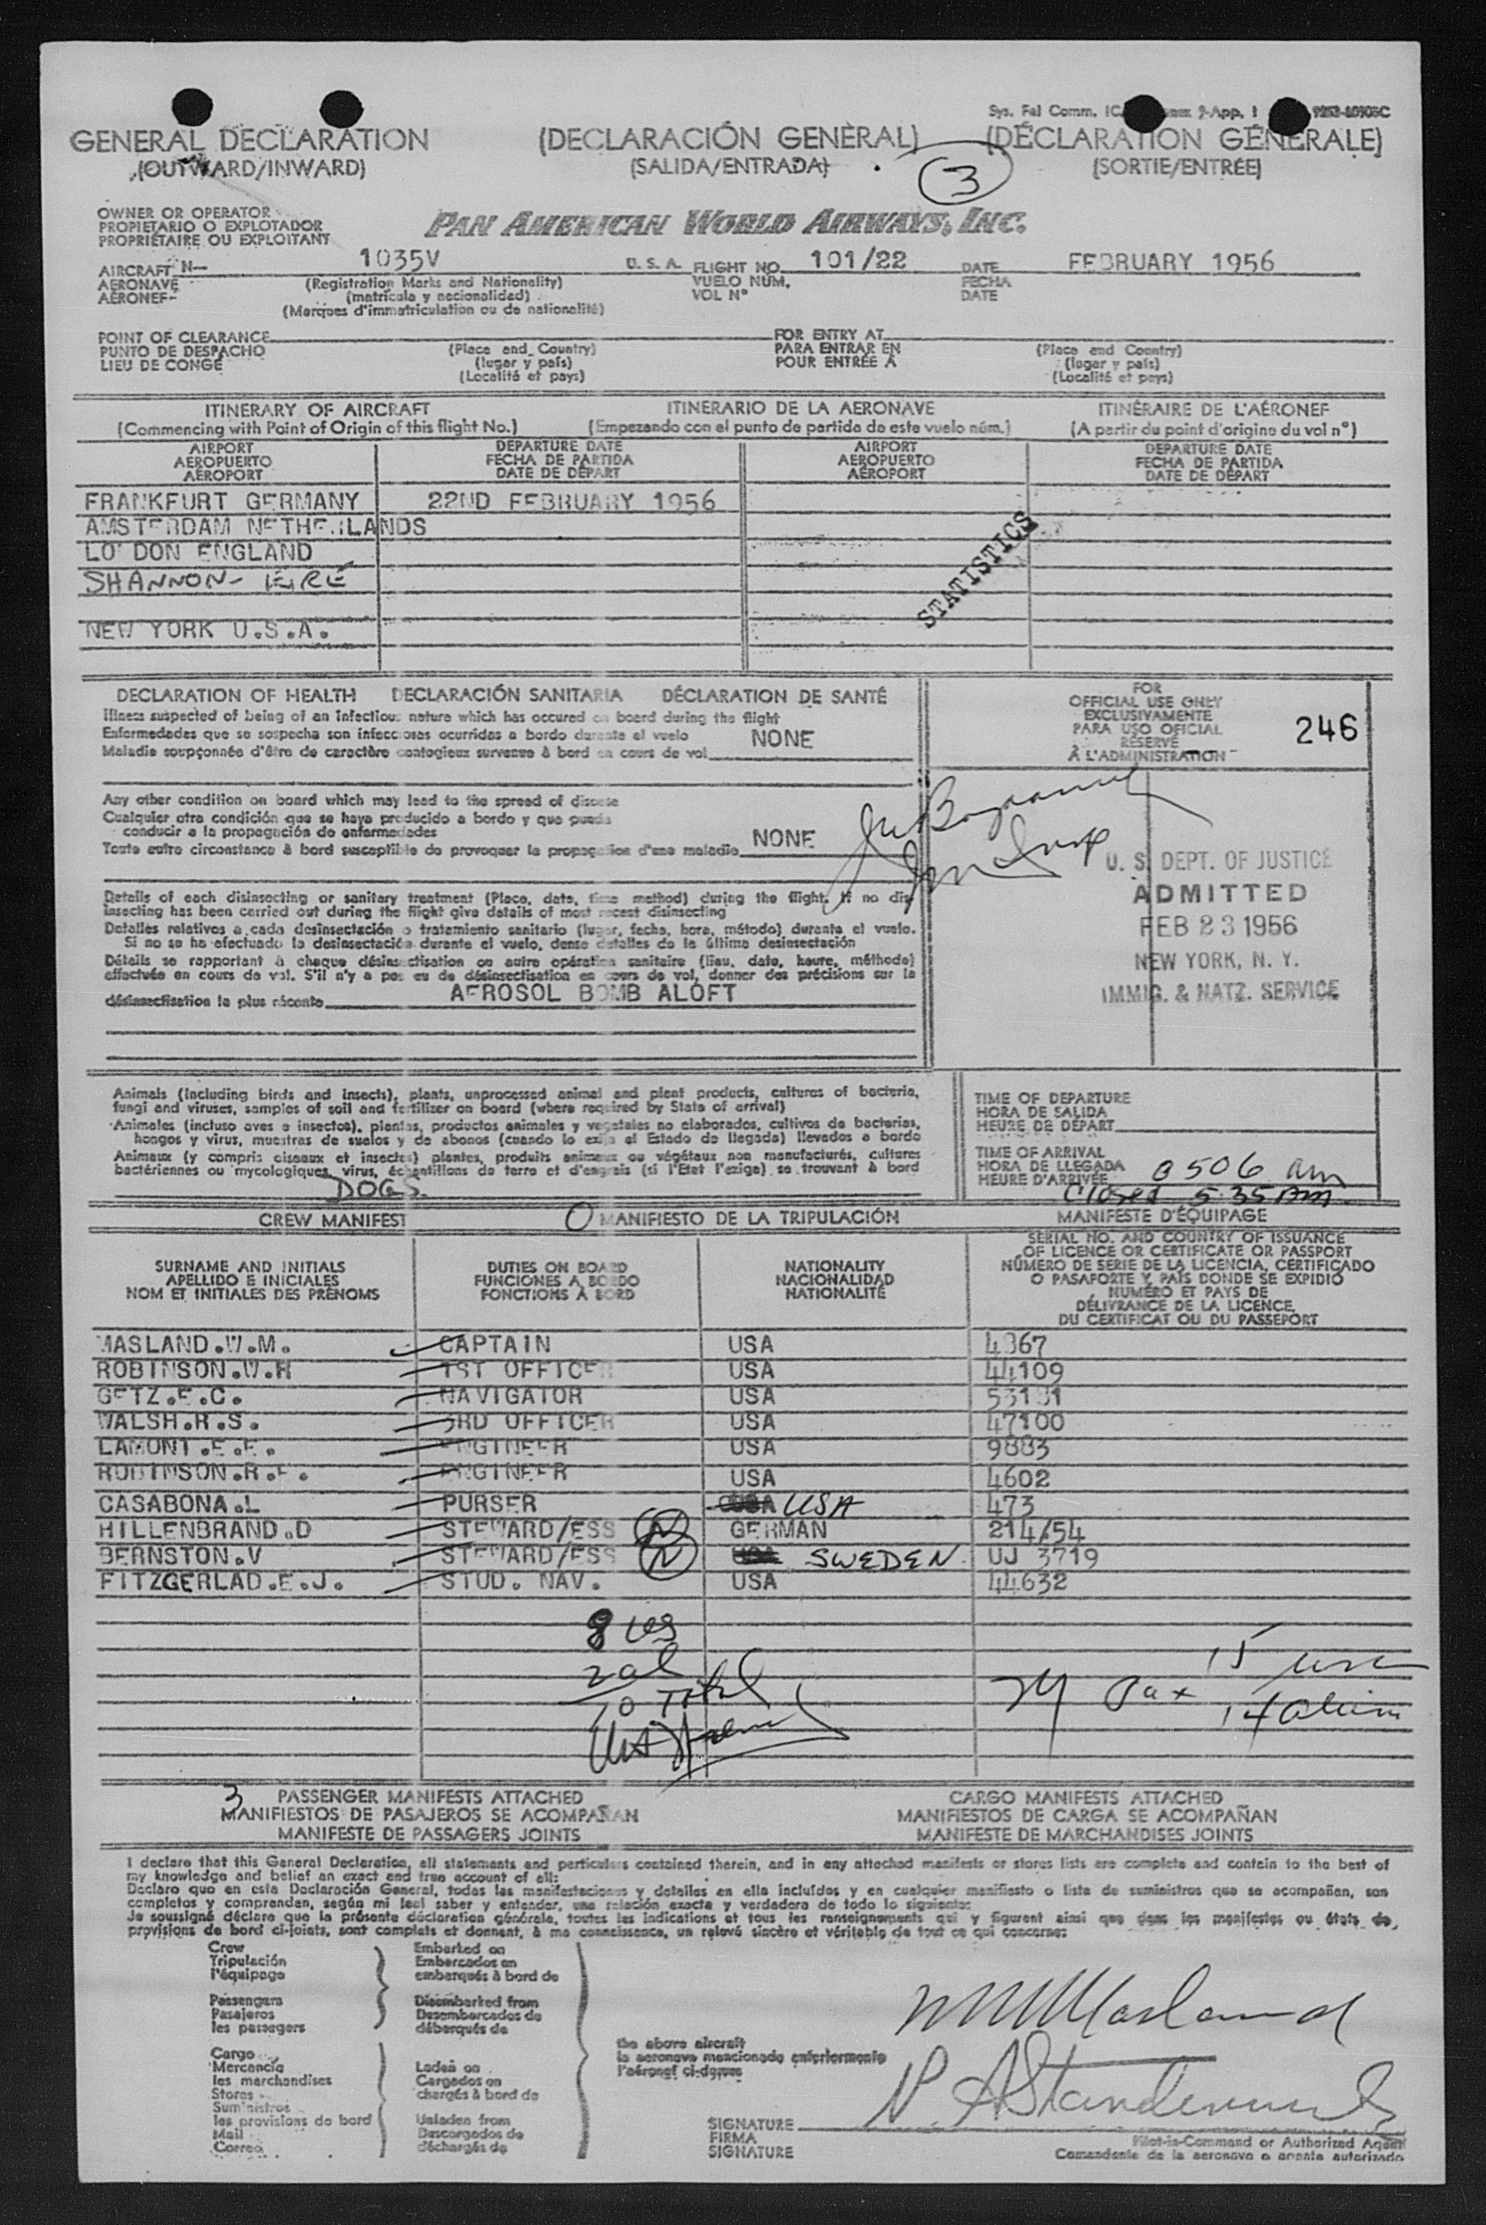 Sys. Fal Comm. 9-App. 1
GENERAL DECLARATION (DECLARACIÓN GENÈRAL) (DÉCLARATION GÉNÉRALE)
(OUTWARD/INWARD) (SALIDA/ENTRADA) (SORTIE/ENTRÉE)
3
OWNER OR OPERATOR
PROPIETARIO O EXPLOTADOR
PROPRIÉTAIRE OU EXPLOITANT
PAN AMERICAN WORLD AIRWAYS, INC.
AIRCRAFT N— 1035V U. S. A. FLIGHT NO. 101/22 DATE FEBRUARY 1956
AERONAVE (Registration Marks and Nationality) VUELO NUM. FECHA
AÉRONEF (matrícula y nacionalidad) VOL N° DATE
(Marques d'immatriculation ou de nationalité)
POINT OF CLEARANCE FOR ENTRY AT
PUNTO DE DESPACHO (Place and Country) PARA ENTRAR EN (Place and Country)
LIEU DE CONGÉ (lugar y país) POUR ENTRÉE A (lugar y país)
(Localité et pays) (Localité et pays)
ITINERARY OF AIRCRAFT ITINERARIO DE LA AERONAVE ITINÉRAIRE DE L'AÉRONEF
(Commencing with Point of Origin of this flight No.) (Empezando con el punto de partida de este vuelo núm.) (A partir du point d'origine du vol n°)
AIRPORT DEPARTURE DATE AIRPORT DEPARTURE DATE
AEROPUERTO FECHA DE PARTIDA AEROPUERTO FECHA DE PARTIDA
AÉROPORT DATE DE DÉPART AÉROPORT DATE DE DÉPART
FRANKFURT GERMANY 22ND FEBRUARY 1956
AMSTERDAM NETHERLANDS
LONDON ENGLAND
SHANNON - EIRÉ
STATISTICS
NEW YORK U.S.A.
DECLARATION OF HEALTH DECLARACIÓN SANITARIA DÉCLARATION DE SANTÉ
Illness suspected of being of an infectious nature which has occured on board during the flight
Enfermedades que se sospecha son infecciosas ocurridas a bordo durante el vuelo NONE
Maladie soupçonnée d'être de caractère contagieux survenue à bord en cours de vol
FOR
OFFICIAL USE ONLY
EXCLUSIVAMENTE
PARA USO OFICIAL
RÉSERVÉ
À L'ADMINISTRATION
246
Any other condition on board which may lead to the spread of disease
Cualquier otra condición que se haya producido a bordo y que pueda
conducir a la propagación de enfermedades
Toute autre circonstance à bord susceptible de provoquer la propagation d'une maladie NONE
U. S. DEPT. OF JUSTICE
ADMITTED
FEB 23 1956
NEW YORK, N. Y.
IMMIG. & NATZ. SERVICE
Details of each disinsecting or sanitary treatment (Place, date, time method) during the flight. If no dis-
insecting has been carried out during the flight give details of most recent disinsecting
Detalles relativos a cada desinsectación o tratamiento sanitario (lugar, fecha, hora, método) durante el vuelo.
Si no se ha efectuado la desinsectación durante el vuelo, dense detalles de la última desinsectación
Détails se rapportant à chaque désinsectisation ou autre opération sanitaire (lieu, date, heure, méthode)
effectuée en cours de vol. S'il n'y a pas eu de désinsectisation en cours de vol, donner des précisions sur la
désinsectisation la plus récente AEROSOL BOMB ALOFT
Animals (including birds and insects), plants, unprocessed animal and plant products, cultures of bacteria,
fungi and viruses, samples of soil and fertilizer on board (where required by State of arrival)
Animales (incluso aves e insectos), plantas, productos animales y vegetales no elaborados, cultivos de bacterias,
hongos y virus, muestras de suelos y de abonos (cuando lo exija el Estado de llegada) llevados a bordo
Animaux (y compris oiseaux et insectes) plantes, produits animaux ou végétaux non manufacturés, cultures
bactériennes ou mycologiques, virus, échantillons de terre et d'engrais (si l'Etat l'exige) se trouvant à bord
DOGS.
TIME OF DEPARTURE
HORA DE SALIDA
HEURE DE DÉPART
TIME OF ARRIVAL
HORA DE LLEGADA
HEURE D'ARRIVÉE 0506 am
Closed 5:35 AM.
CREW MANIFEST 0 MANIFIESTO DE LA TRIPULACIÓN MANIFESTE D'ÉQUIPAGE
SURNAME AND INITIALS
APELLIDO E INICIALES
NOM ET INITIALES DES PRÉNOMS
DUTIES ON BOARD
FUNCIONES A BORDO
FONCTIONS À BORD
NATIONALITY
NACIONALIDAD
NATIONALITÉ
SERIAL NO. AND COUNTRY OF ISSUANCE
OF LICENCE OR CERTIFICATE OR PASSPORT
NÚMERO DE SERIE DE LA LICENCIA, CERTIFICADO
O PASAPORTE Y PAÍS DONDE SE EXPIDIÓ
NUMÉRO ET PAYS DE
DÉLIVRANCE DE LA LICENCE,
DU CERTIFICAT OU DU PASSEPORT
MASLAND.W.M. CAPTAIN USA 4367
ROBINSON.W.H 1ST OFFICER USA 44109
GETZ.E.C. NAVIGATOR USA
WALSH.R.S. 3RD OFFICER USA 47100
LAMONT.E.E. ENGINEER USA 9883
ROBINSON.R.F. ENGINEER USA 4602
CASABONA.L PURSER USA 473
HILLENBRAND.D STEWARD/ESS N GERMAN 214/54
BERNSTON.V STEWARD/ESS N SWEDEN UJ 3719
FITZGERLAD.E.J. STUD. NAV. USA 44632
8 ucs
2 al
10 Total
29 Pax 15 usc
14 aliens
3 PASSENGER MANIFESTS ATTACHED CARGO MANIFESTS ATTACHED
MANIFIESTOS DE PASAJEROS SE ACOMPAÑAN MANIFIESTOS DE CARGA SE ACOMPAÑAN
MANIFESTE DE PASSAGERS JOINTS MANIFESTE DE MARCHANDISES JOINTS
I declare that this General Declaration, all statements and particulars contained therein, and in any attached manifests or stores lists are complete and contain to the best of
my knowledge and belief an exact and true account of all:
Declaro que en esta Declaración General, todas las manifestaciones y detalles en ella incluídos y en cualquier manifiesto o lista de suministros que se acompañan, son
completos y comprenden, según mi leal saber y entender, una relación exacta y verdadera de todo lo siguiente:
Je soussigné déclare que la présente déclaration générale, toutes les indications et tous les renseignements qui y figurent ainsi que dans les manifestes ou états de
provisions de bord ci-joints, sont complets et donnent, à ma connaissance, un relevé sincère et véritable de tout ce qui concerne:
Crew Embarked on
Tripulación Embarcados en
l'équipage embarqués à bord de
Passengers Disembarked from
Pasajeros Desembarcados de
les passagers débarqués de
the above aircraft
la aeronave mencionada anteriormente
l'aéronef ci-dessus
Cargo
Mercancía Laden on
les marchandises Cargados en
Stores chargés à bord de
Suministros
les provisions de bord Unladen from
Mail Descargados de
Correo déchargés de
WMMasland
SIGNATURE
FIRMA
SIGNATURE
Pilot-in-Command or Authorized Agent
Comandante de la aeronave o agente autorizado